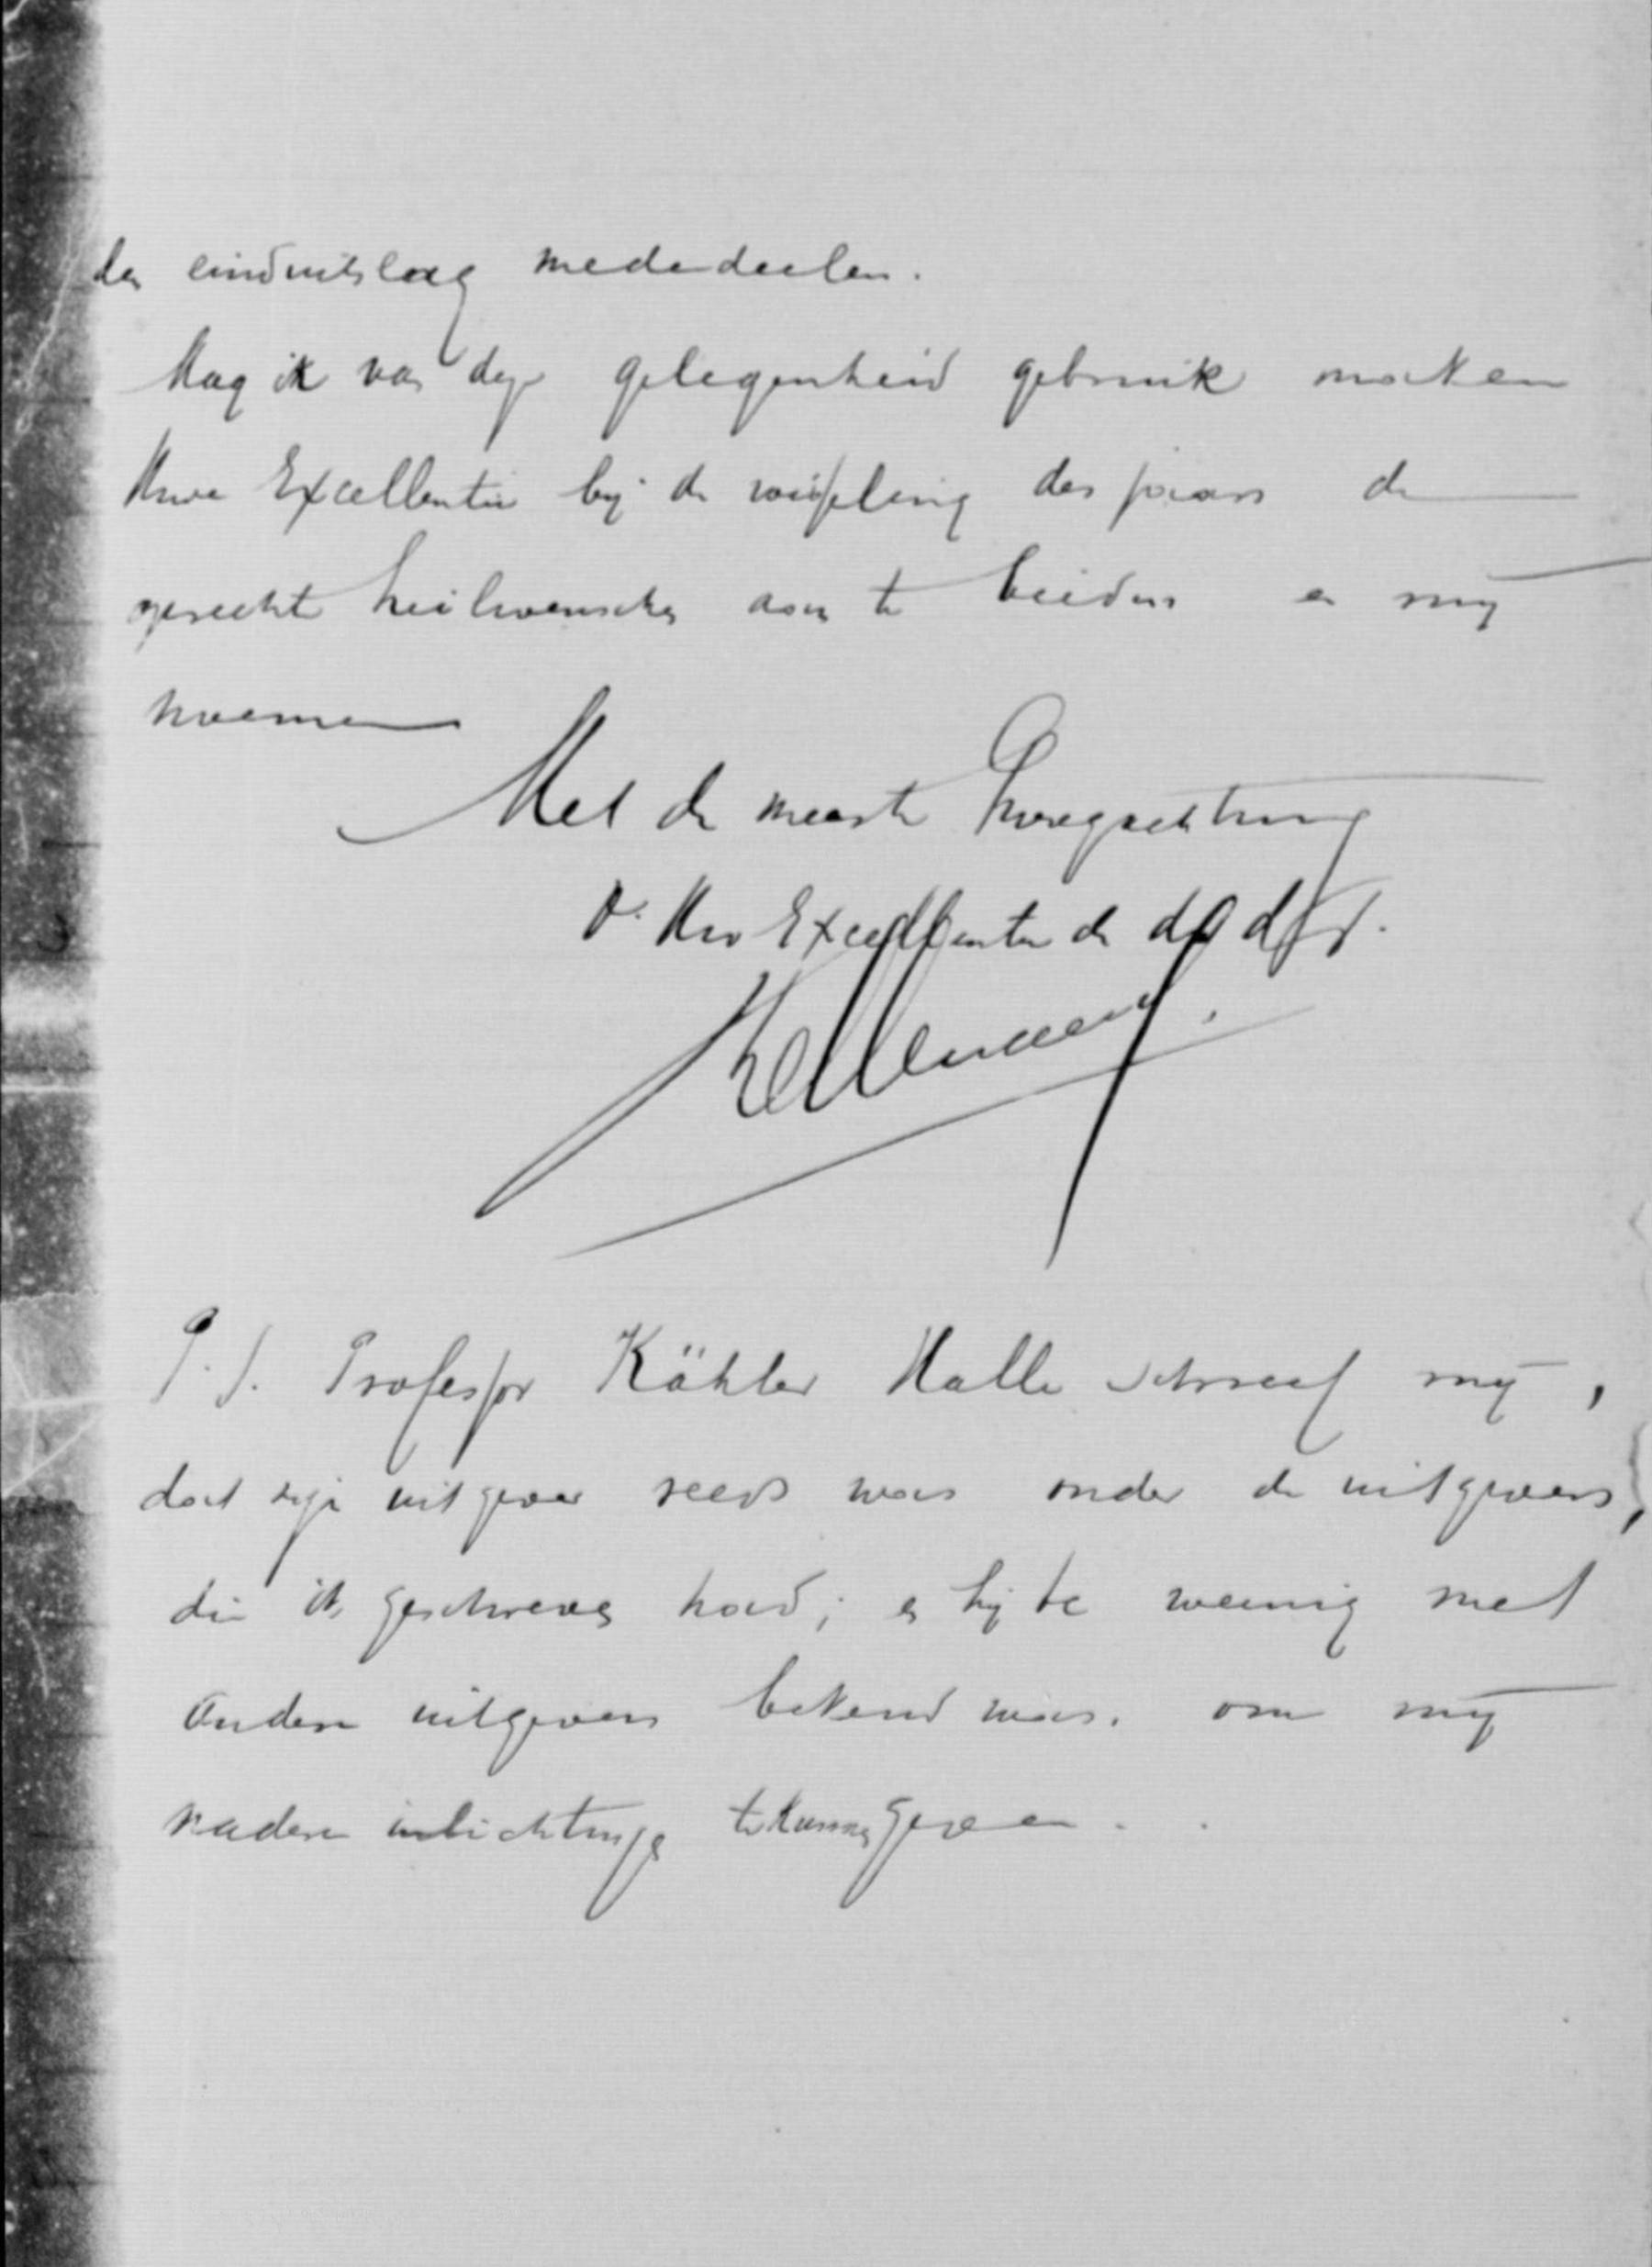 den einduitslag mededeelen.
Mag ik van deze gelegenheid gebruik maken
Uwe Excellentie bij de wisseling des jaars de
oprechte heilwenschen aan te bieden en mij
noemen
Met de meeste Hoogachting
v. Uw Excellentie de dd dr.
Kellemans.
P.S. Professor Kähler Halle schreef mij,
dat zijn uitgever reeds was onder de uitgevers,
die ik geschreven had; en hij te weinig met
andere uitgevers bekend was, om mij
nadere inlichtingen te kunnen geven.